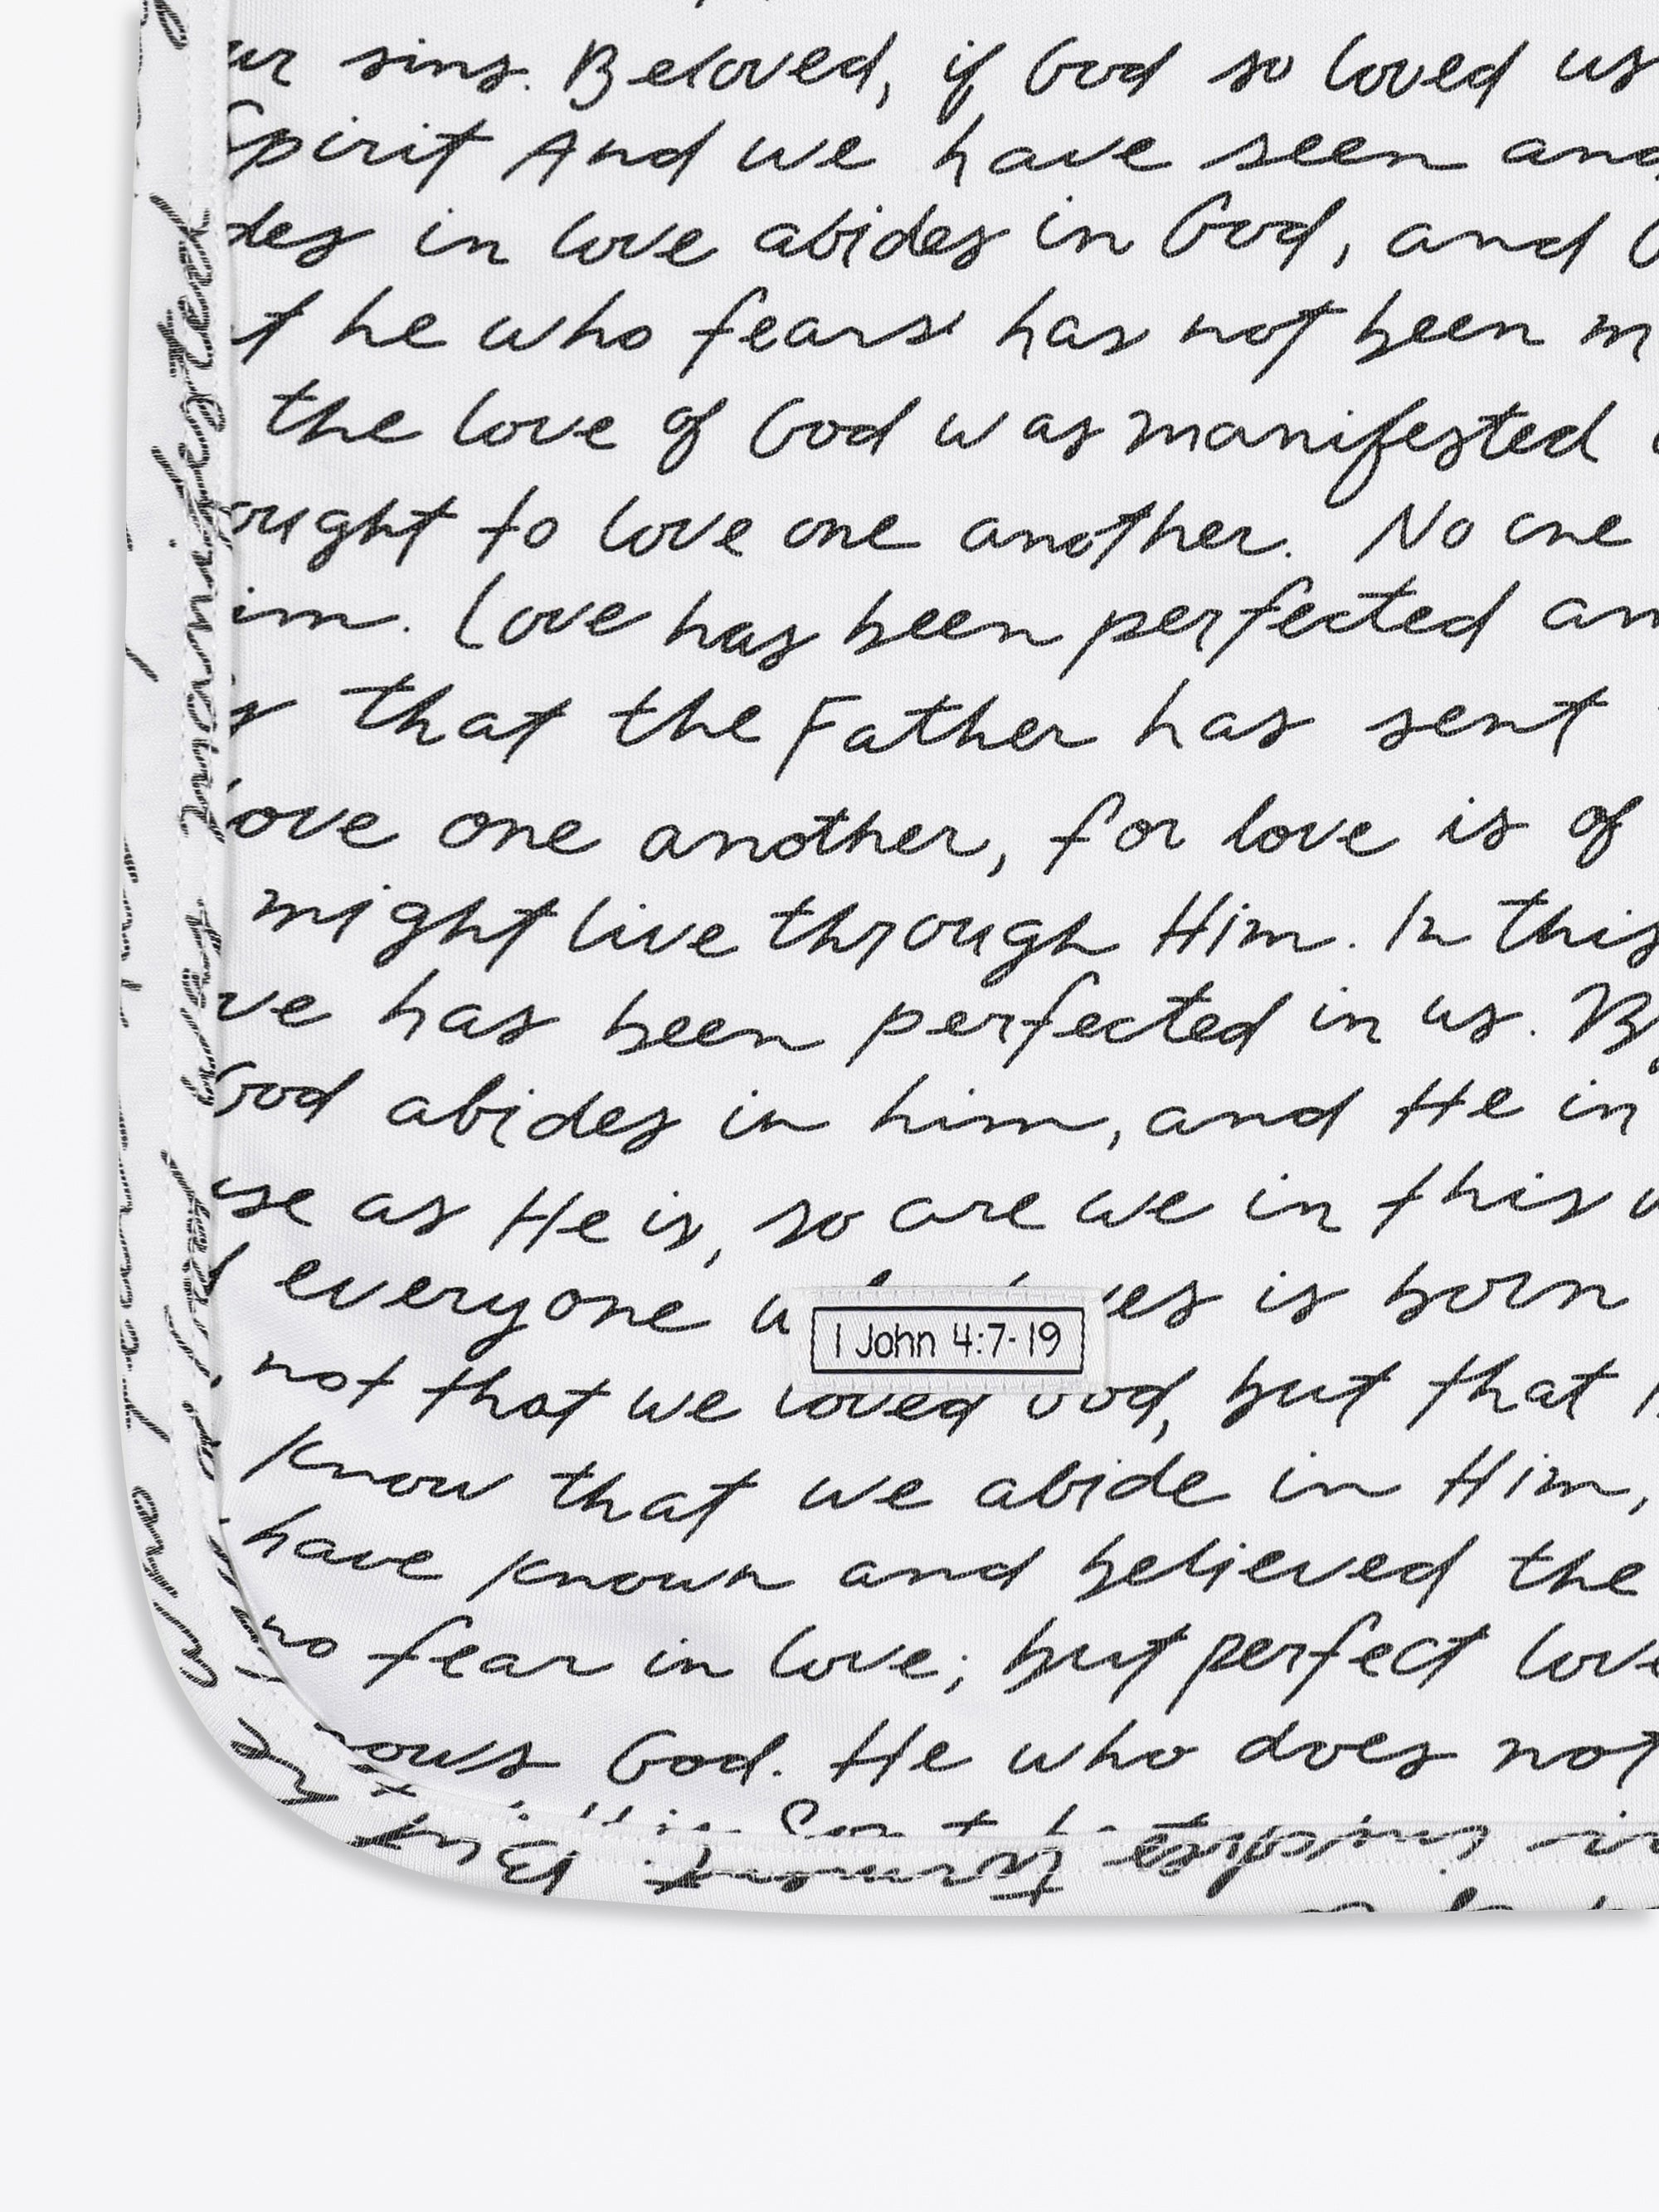 sins. Beloved, if God so loved us
Spirit And we have seen and
in love abides in God, and
he who fears has not been
the love of God was manifested
ought to love one another. No one
Love has been perfected
that the Father has sent
love one another, for love is of
might live through Him. In this
has been perfected in us.
God abides in him, and He in
as He is, so are we in this
everyone is born
1 John 4:7-19
not that we loved God, but that
know that we abide in Him,
have known and believed the
no fear in love; but perfect love
God. He who does not
manifested
But